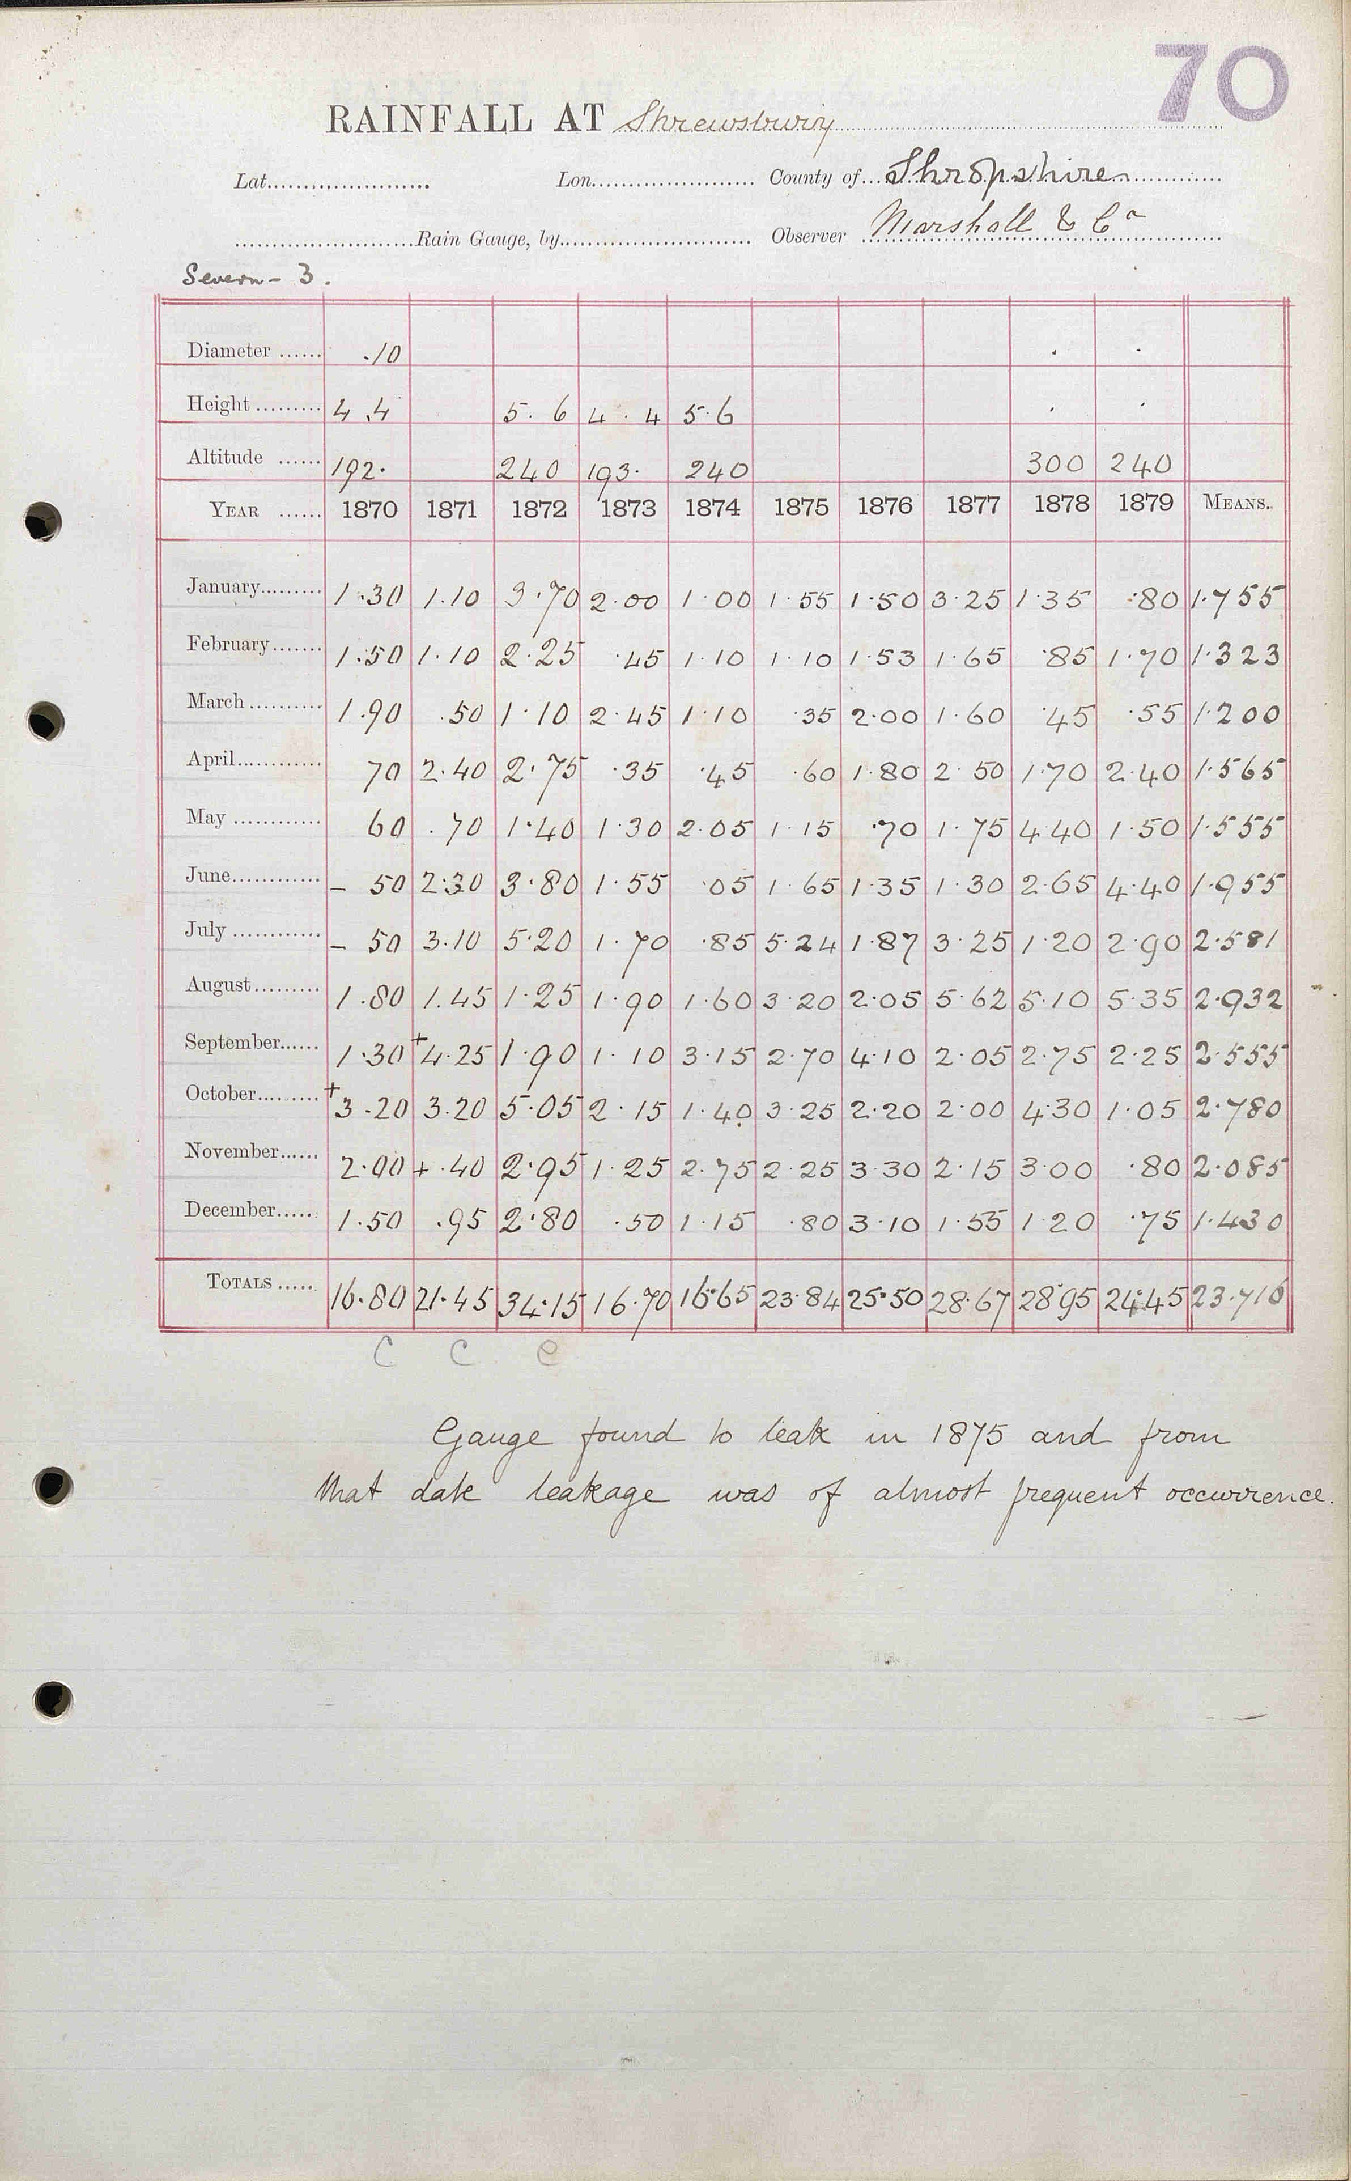 70
RAINFALL AT Shrewsbury
Lat. Lon. County of Shropshire
Rain Gauge, by Observer Marshall & Co
Severn - 3.
Diameter ...... .10
Height ......... 4.4 5.6 4.4 5.6
Altitude ...... 192. 240 193. 240 300 240
YEAR ...... 1870 1871 1872 1873 1874 1875 1876 1877 1878 1879 MEANS.
January......... 1.30 1.10 3.70 2.00 1.00 1.55 1.50 3.25 1.35 .80 1.755
February....... 1.50 1.10 2.25 .45 1.10 1.10 1.53 1.65 .85 1.70 1.323
March .......... 1.90 .50 1.10 2.45 1.10 .35 2.00 1.60 .45 .55 1.200
April............ 70 2.40 2.75 .35 .45 .60 1.80 2.50 1.70 2.40 1.565
May ............ 60 .70 1.40 1.30 2.05 1.15 .70 1.75 4.40 1.50 1.555
June............ - 50 2.30 3.80 1.55 .05 1.65 1.35 1.30 2.65 4.40 1.955
July ............ - 50 3.10 5.20 1.70 .85 5.24 1.87 3.25 1.20 2.90 2.581
August......... 1.80 1.45 1.25 1.90 1.60 3.20 2.05 5.62 5.10 5.35 2.932
September...... 1.30 +4.25 1.90 1.10 3.15 2.70 4.10 2.05 2.75 2.25 2.555
October......... +3.20 3.20 5.05 2.15 1.40 3.25 2.20 2.00 4.30 1.05 2.780
November...... 2.00 + .40 2.95 1.25 2.75 2.25 3.30 2.15 3.00 .80 2.085
December..... 1.50 .95 2.80 .50 1.15 .80 3.10 1.55 1.20 .75 1.430
TOTALS ..... 16.80 21.45 34.15 16.70 16.65 23.84 25.50 28.67 28.95 24.45 23.716
C C C
Gauge found to leak in 1875 and from
that date leakage was of almost frequent occurrence.